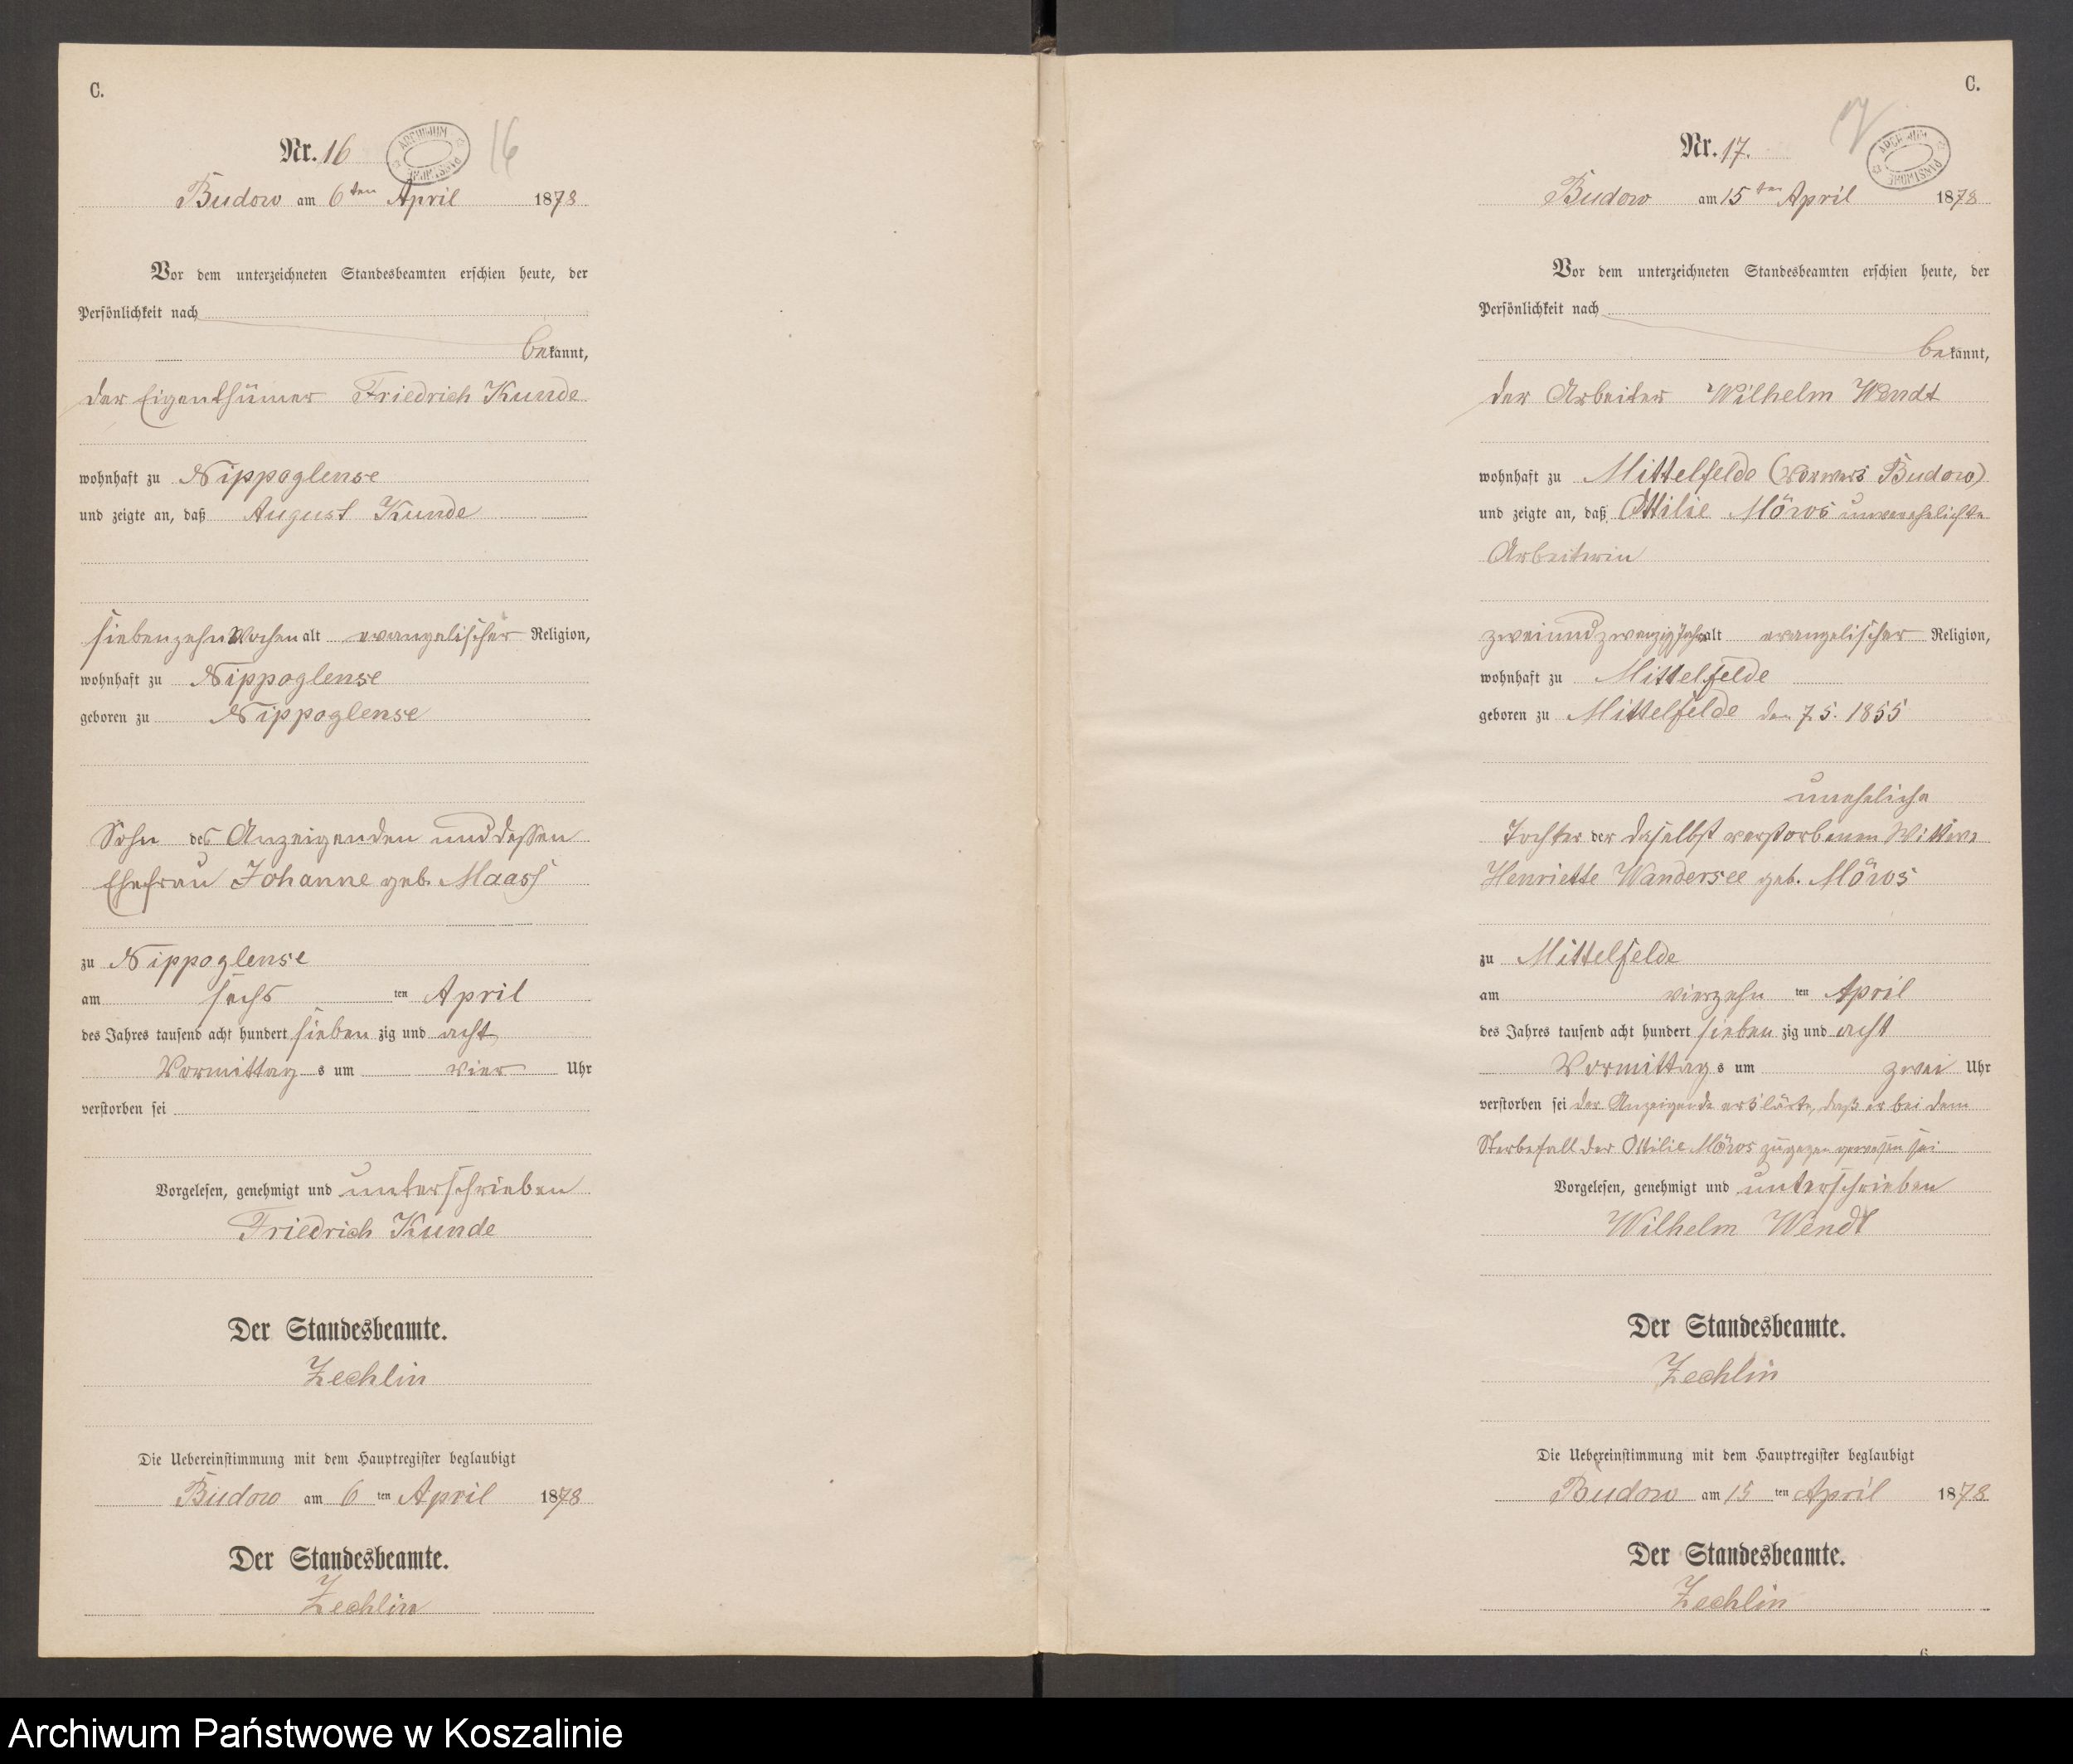 C.
Nr. 16
ARCHIWUM PAŃSTWOWE
16
Budow am 6ten April 1878
Vor dem unterzeichneten Standesbeamten erschien heute, der
Persönlichkeit nach
bekannt,
der Eigenthümer Friedrich Kunde
wohnhaft zu Nippoglense
und zeigte an, daß August Kunde
siebenzehn Wochen alt evangelischer Religion,
wohnhaft zu Nippoglense
geboren zu Nippoglense
Sohn des Anzeigenden und dessen
Ehefrau Johanne geb. Maass
zu Nippoglense
am sechsten April
des Jahres tausend acht hundert siebenzig und acht
Vormittags um vier Uhr
verstorben sei
Vorgelesen, genehmigt und unterschrieben
Friedrich Kunde
Der Standesbeamte.
Zechlin
Die Uebereinstimmung mit dem Hauptregister beglaubigt
Budow am 6ten April 1878
Der Standesbeamte.
Zechlin
C.
Nr. 17.
17
ARCHIWUM PAŃSTWOWE
Budow am 15ten April 1878
Vor dem unterzeichneten Standesbeamten erschien heute, der
Persönlichkeit nach
bekannt,
der Arbeiter Wilhelm Wendt
wohnhaft zu Mittelfelde (Vorwerk Budow)
und zeigte an, daß Ottilie Möws unverehelichte
Arbeiterin
zweiundzwanzig Jahr alt evangelischer Religion,
wohnhaft zu Mittelfelde
geboren zu Mittelfelde den 7.5. 1855
uneheliche
Tochter der daselbst verstorbenen Wittwe
Henriette Wandersee geb. Möws
zu Mittelfelde
am vierzehnten April
des Jahres tausend acht hundert siebenzig und acht
Vormittags um zwei Uhr
verstorben sei der Anzeigende erklärte, daß er bei dem
Sterbefall der Ottilie Möws zugegen gewesen sei
Vorgelesen, genehmigt und unterschrieben
Wilhelm Wendt
Der Standesbeamte.
Zechlin
Die Uebereinstimmung mit dem Hauptregister beglaubigt
Budow am 15ten April 1878
Der Standesbeamte.
Zechlin
6
Archiwum Państwowe w Koszalinie